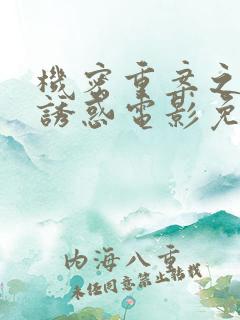 機密重案之
誘惑電影免
内海八重
未经同意禁止转载